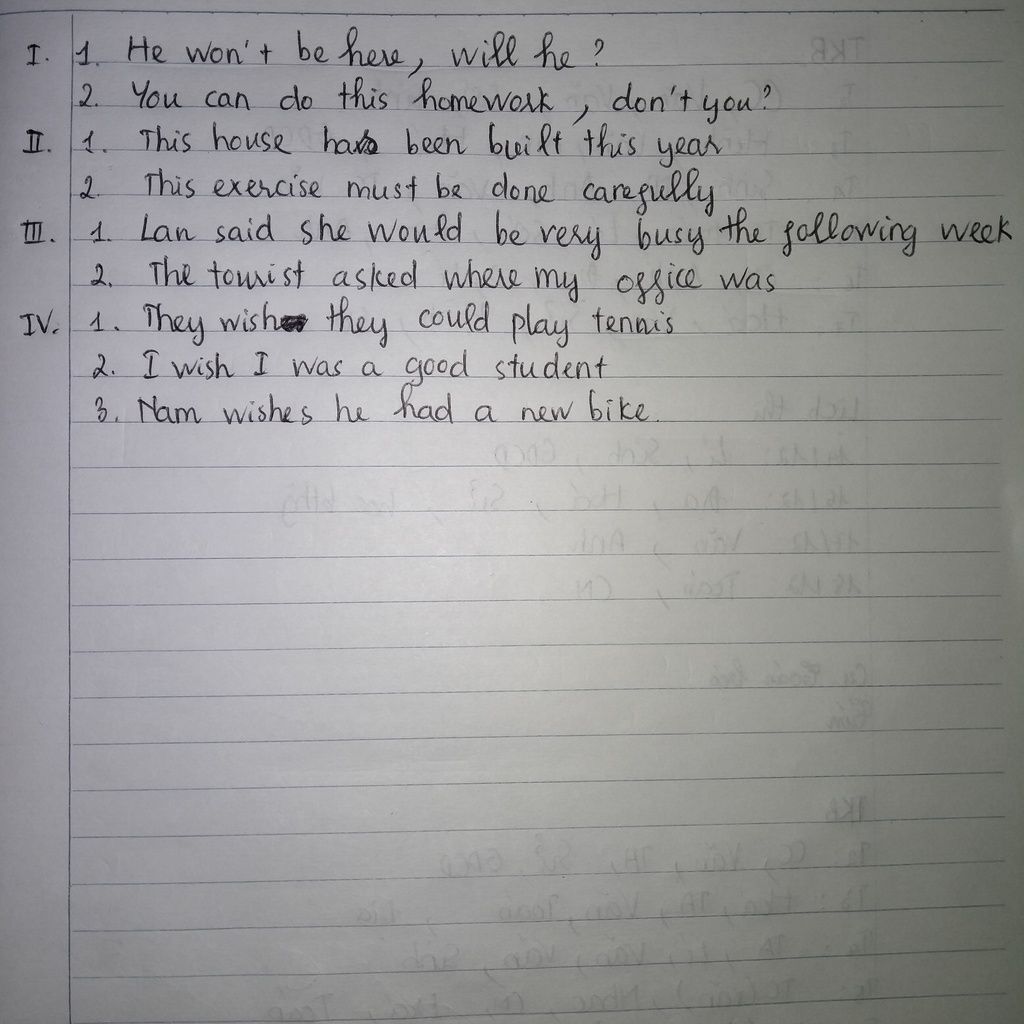 I. 1. He won't be here, will he?
2. You can do this homework, don't you?
II. 1. This house has been built this year
2. This exercise must be done carefully
III. 1. Lan said she would be very busy the following week
2. The tourist asked where my office was
IV. 1. They wish they could play tennis
2. I wish I was a good student
3. Nam wishes he had a new bike.